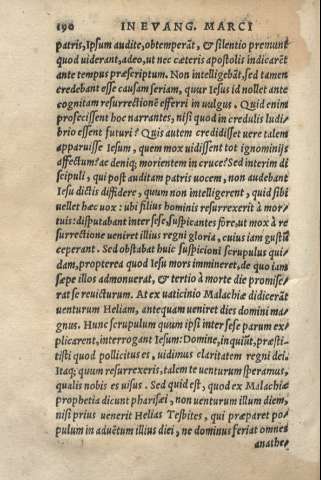 190 IN EVANG. MARCI
patris, Ipsum audite, obtemperāt, & silentio premunt
quod uiderant, adeo, ut nec cæteris apostolis indicarēt
ante tempus præscriptum. Non intelligebāt, sed tamen
credebant esse causam seriam, quur Iesus id nollet ante
cognitam resurrectionē efferri in uulgus. Quid enim
profecissent hoc narrantes, nisi quod incredulis ludi⸗
brio essent futuri? Quis autem credidisset uere talem
apparuisse Iesum, quem mox uidissent tot ignominijs
affectum? ac deniq; morientem in cruce? Sed interim di
scipuli, qui post auditam patris uocem, non audebant
Iesu dictis diffidere, quum non intelligerent, quid sibi
uellet hæc uox: ubi filius hominis resurrexerit à mor⸗
tuis: disputabant inter sese, suspicantes fore, ut mox à re
surrectione ueniret illius regni gloria, cuius iam gustū
ceperant. Sed obstabat huic suspicioni scrupulus qui⸗
dam, propterea quod Iesu mors immineret, de quo iam
sæpe illos admonuerat, & tertio à morte die promise⸗
rat se reuicturum. At ex uaticinio Malachiæ didicerāt
uenturum Heliam, antequam ueniret dies domini ma⸗
gnus. Hunc scrupulum quum ipsi inter sese parum ex⸗
plicarent, interrogant Iesum: Domine, inquiūt, præsti⸗
tisti quod pollicitus es, uidimus claritatem regni dei.
Itaq; quum resurrexeris, talem te uenturum speramus,
qualis nobis es uisus. Sed quid est, quod ex Malachiæ
prophetia dicunt pharisæi, non uenturum illum diem,
nisi prius uenerit Helias Tesbites, qui præparet po⸗
pulum in aduētum illius diei, ne dominus feriat omnes
anathe⸗